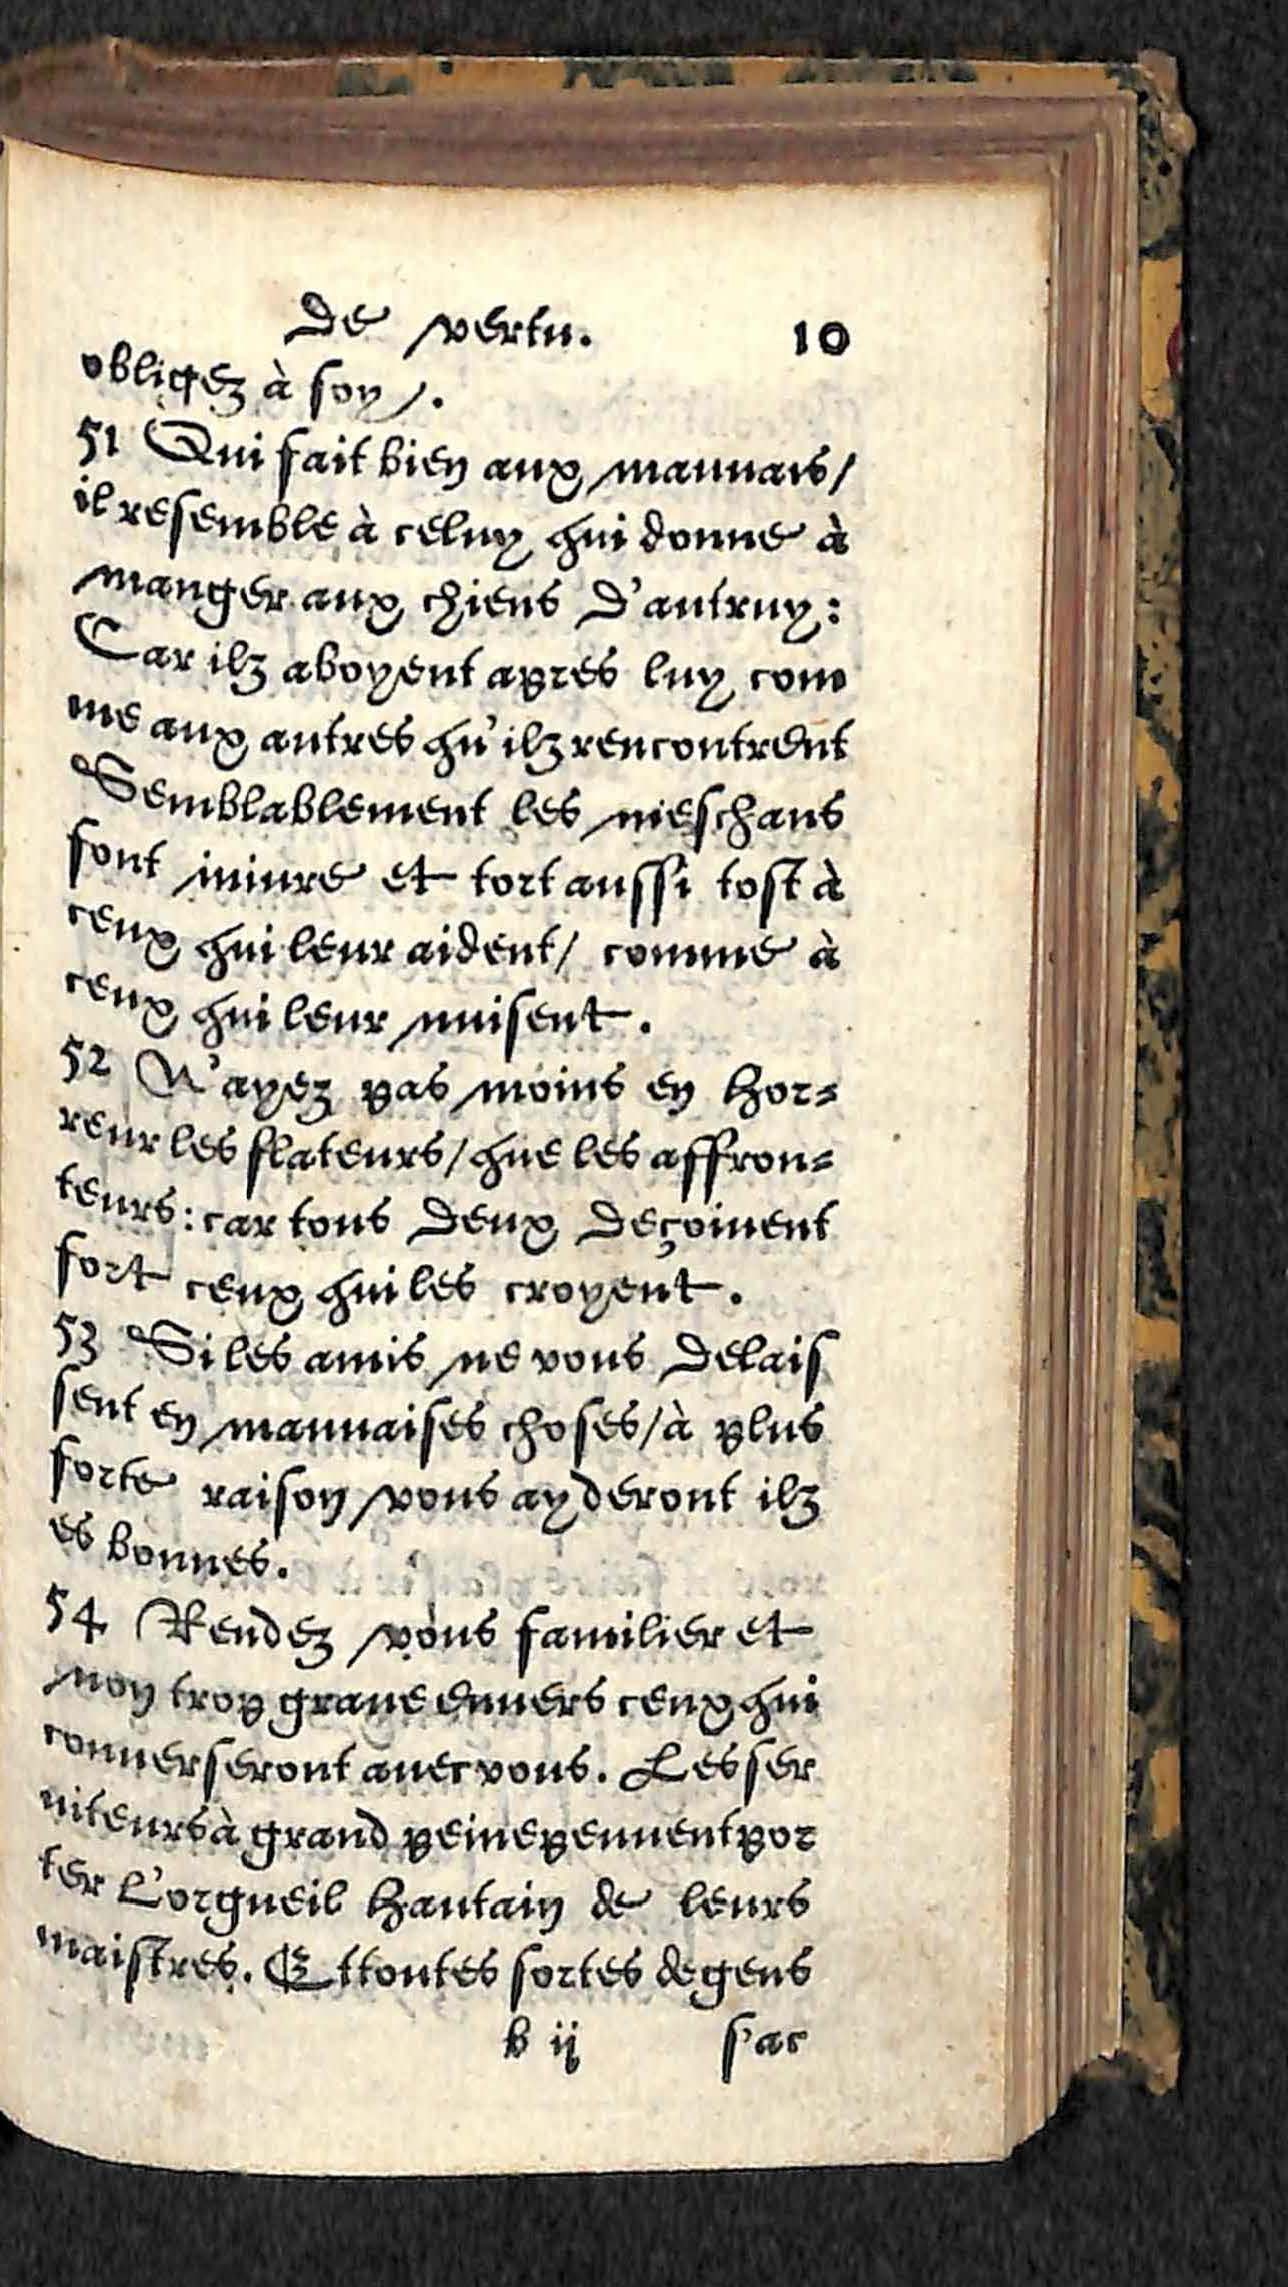 de vertu. 10
obligez à soy.
51 Qui fait bien aux mauuais/
il resemble à celuy qui donne à
manger aux chiens d'autruy:
Car ilz aboyent apres luy com
me aux autres qu'ilz rencontrent
Semblablement les meschans
font iniure et tort aussi tost à
ceux qui leur aident/ comme à
ceux qui leur nuisent.
52 N'ayez pas moins en hor-
reur les flateurs/que les affron-
teurs: car tous deux deçoiuent
fort ceux qui les croyent.
53 Si les amis ne vous delais
sent en mauuaises choses/à plus
forte raison vous ayderont ilz
es bonnes.
54 Rendez vous familier et
non trop graue enuers ceux qui
conuerseront auec vous. Les ser
uiteurs à grand peine peuuent por
ter l'orgueil hautain de leurs
maistres. Et toutes sortes de gens
b ij s'ac